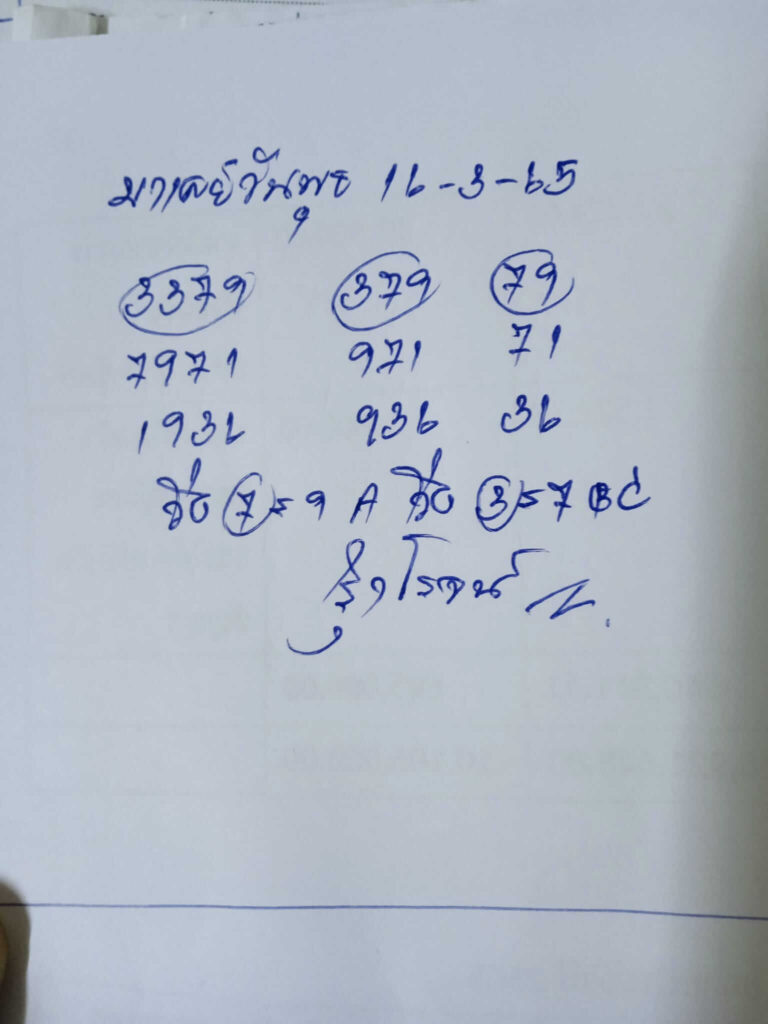 มาเลย์วันพุธ 16-3-65
3379 379 79
7971 971 71
1936 936 36
คือ 7=9 A คือ 3=7 BC
รุ่งโรจน์